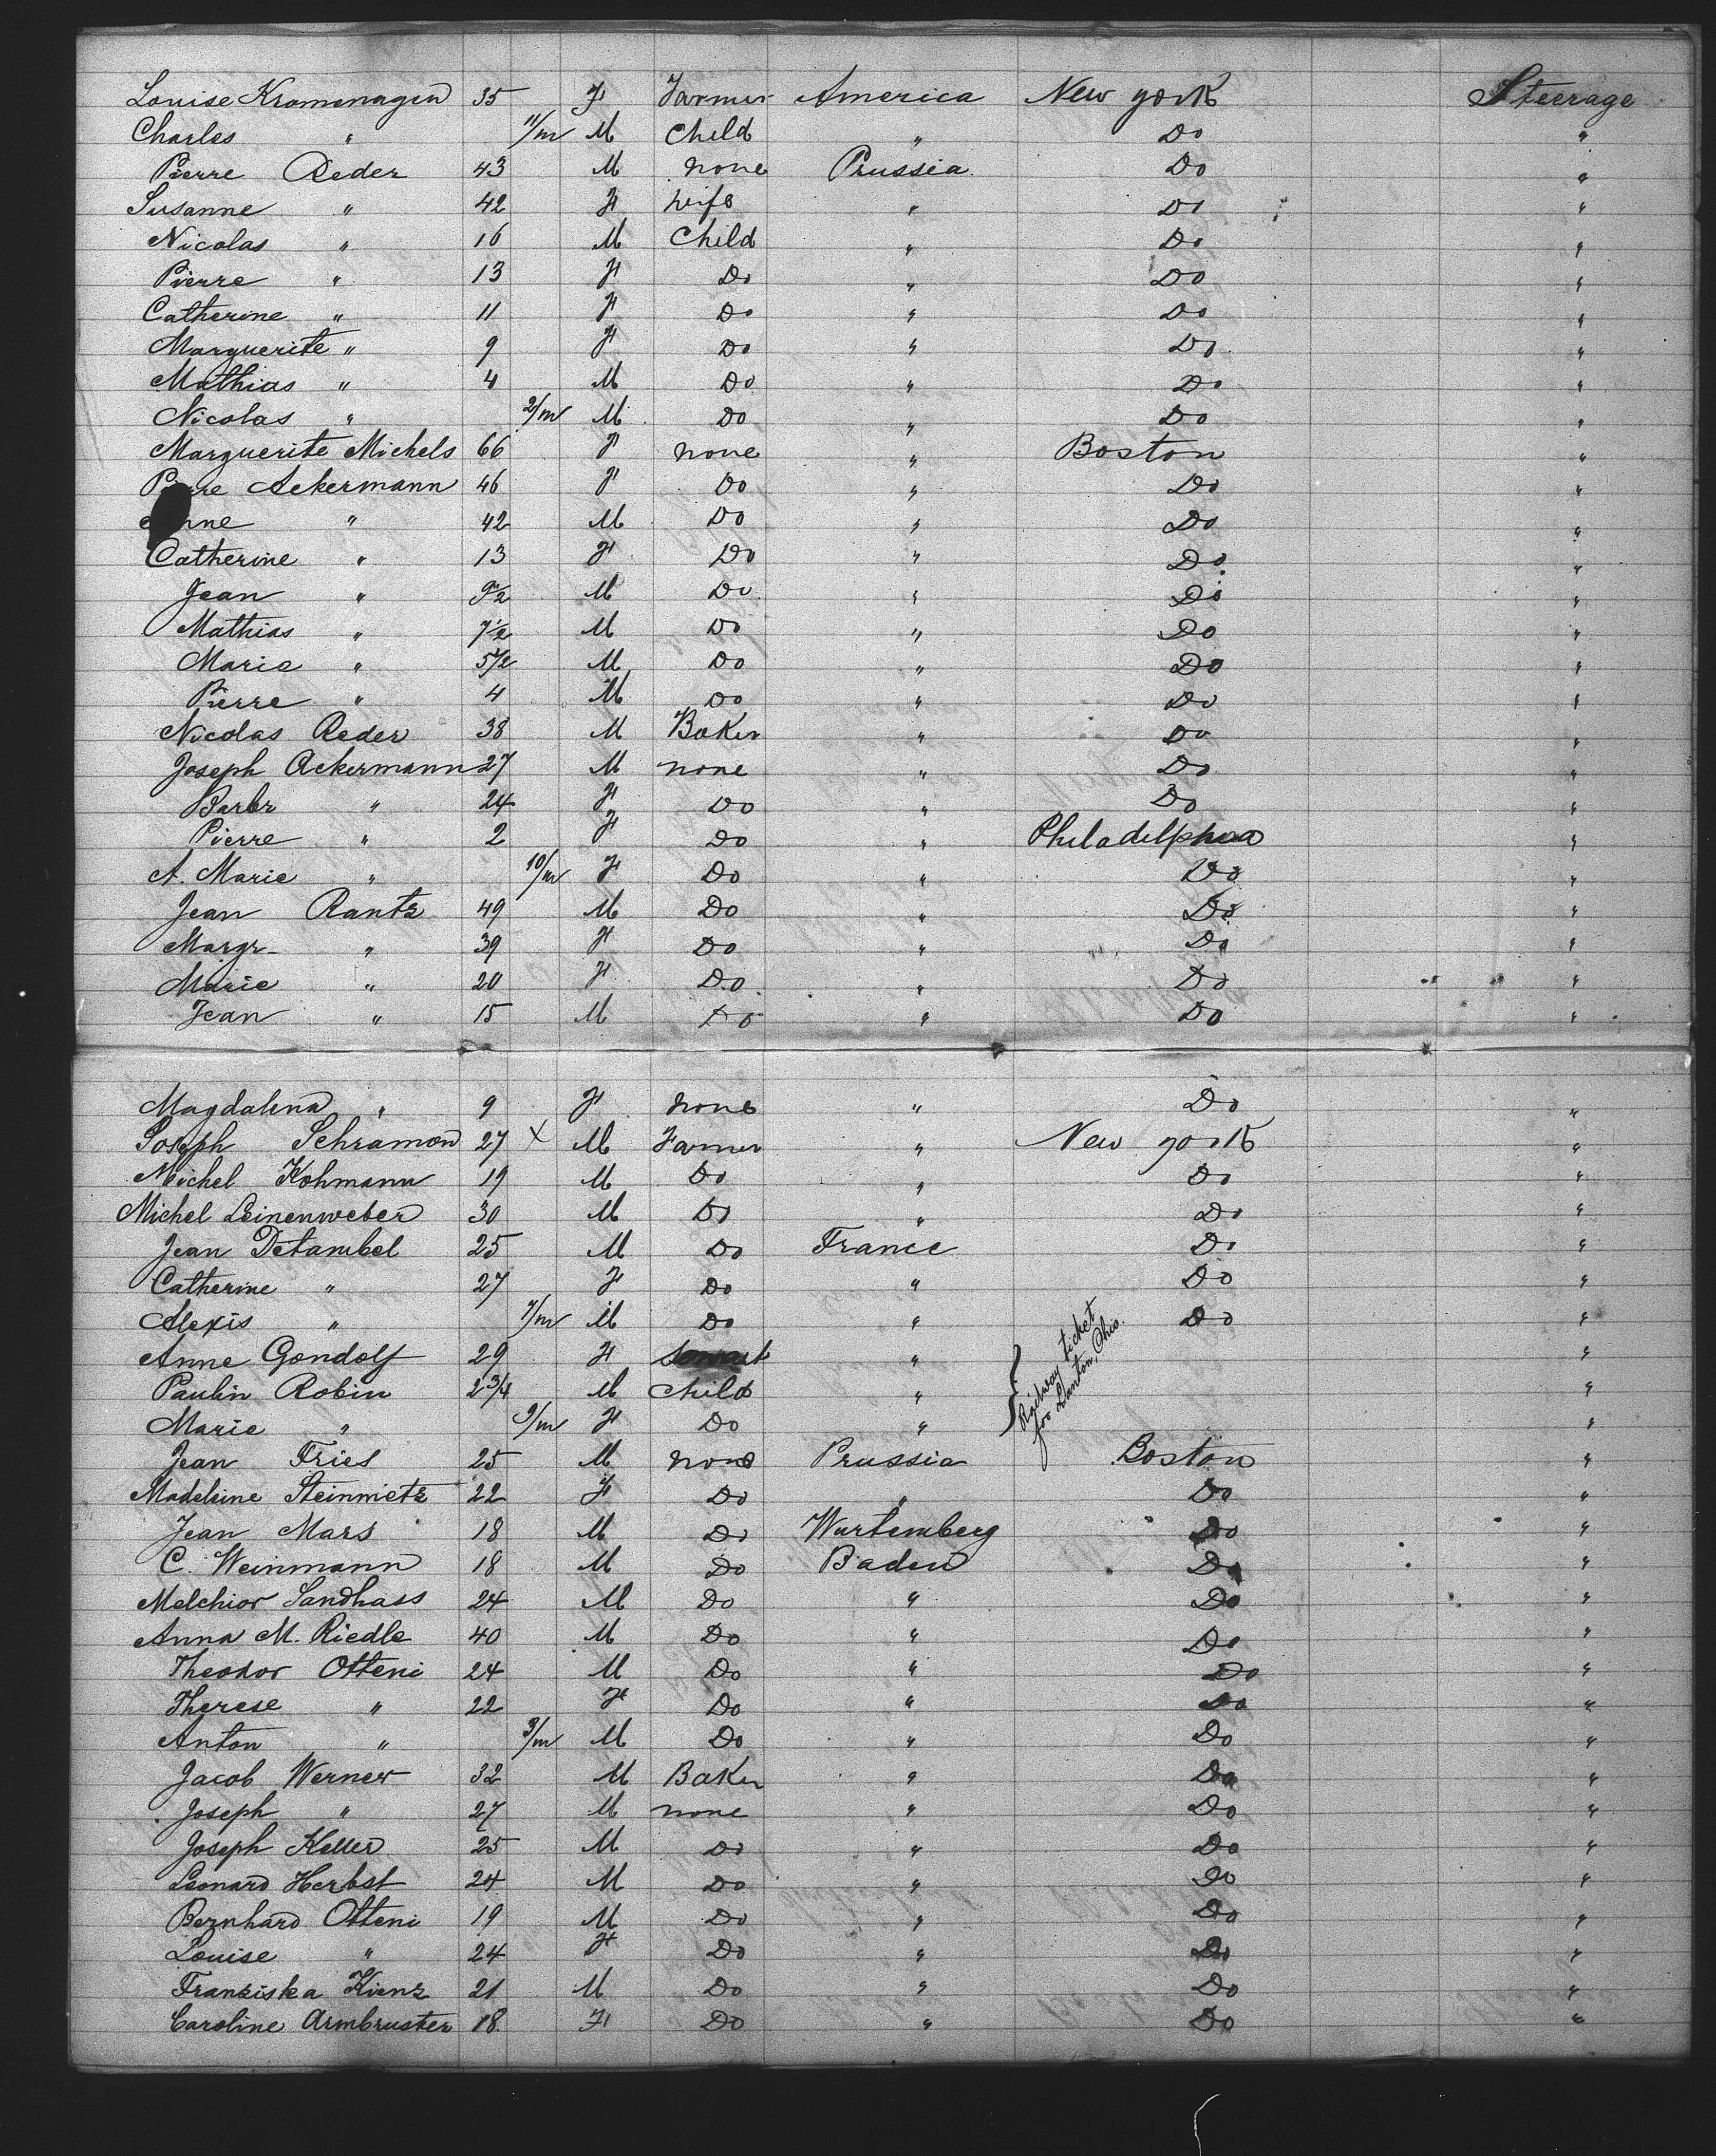 Louise Kromenagen 35 F Farmer America New york Steerage
Charles " 11/m M Child " Do "
Pierre Reder 43 M none Prussia Do "
Susanne " 42 F wife " Do "
Nicolas " 16 M Child " Do "
Pierre " 13 F Do " Do "
Catherine " 11 F Do " Do "
Marguerite " 9 F Do " Do "
Mathias " 4 M Do " Do "
Nicolas " 2/m M Do " Do "
Marguerite Michels 66 F none " Boston "
Ackermann 46 F Do " Do "
" 42 M Do " Do "
Catherine " 13 F Do " Do "
Jean " 9½ M Do " Do "
Mathias " 7½ M Do " Do "
Marie " 5½ M Do " Do "
Pierre " 4 M Do " Do "
Nicolas Reder 38 M Baker " Do "
Joseph Ackermann 27 M none " Do "
Barbr " 24 F Do " Do "
Pierre " 2 F Do " Philadelphia "
A. Marie " 10/m F Do " Do "
Jean Rantz 49 M Do " Do "
Margr- " 39 F Do " Do "
Marie " 20 F Do " Do "
Jean " 15 M Do " Do "
Magdalena " 9 F none " Do "
Joseph Schramon 27 X M Farmer " New york "
Michel Kohmann 19 M Do " Do "
Michel Leinenweber 30 M Do " Do "
Jean Detambel 25 M Do France Do "
Catherine " 27 F Do " Do "
Alexis " 7/m M Do " Do "
Anne Gondolf 29 F " "
Railway ticket
for Canton, Ohio.
Paulin Robin 2¾ M Child " "
Marie " 9/m F Do " "
Jean Fries 25 M none Prussia Boston "
Madeleine Steinmetz 22 F Do " Do "
Jean Mars 18 M Do Wurtemberg Do "
C. Weinmann 18 M Do Baden Do "
Melchior Sandhass 24 M Do " Do "
Anna M. Riedle 40 M Do " Do "
Theodor Otteni 24 M Do " Do "
Therese " 22 F Do " Do "
Anton " 3/m M Do " Do "
Jacob Werner 32 M Baker " Do "
Joseph " 27 M none " Do "
Joseph Keller 25 M Do " Do "
Leonard Herbst 24 M Do " Do "
Bernhard Otteni 19 M Do " Do "
Louise " 24 F Do " Do "
Franziska Kienz 21 M Do " Do "
Caroline Armbruster 18. F Do " Do "